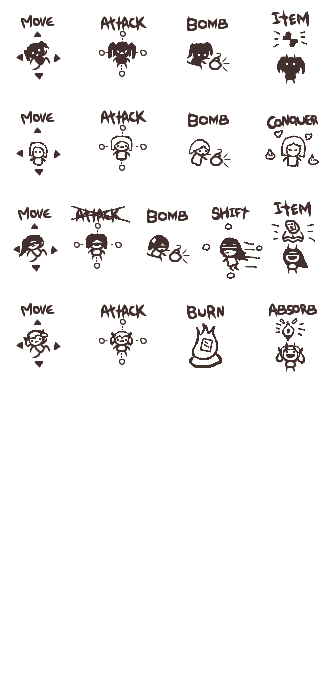 MOVE ATTACK BOMB ITEM
MOVE ATTACK BOMB CONQUER
MOVE ATTACK BOMB SHIFT ITEM
MOVE ATTACK BURN ABSORB